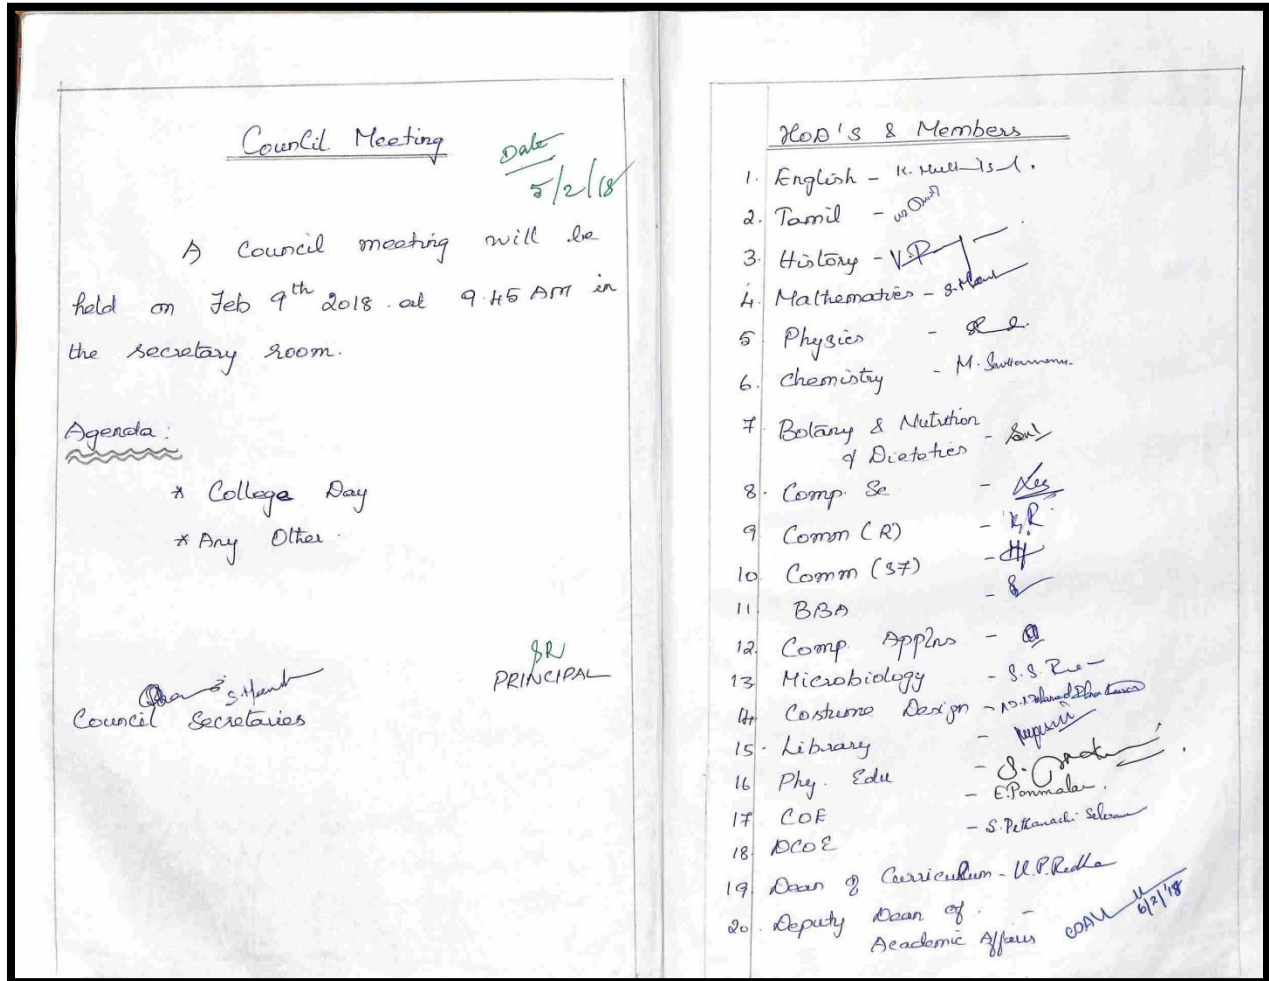 Council Meeting
Date
5/2/18
A Council meeting will be
held on Feb 9th 2018 at 9.45 AM in
the secretary room.
Agenda:
* College Day
* Any Other.
SR
PRINCIPAL
Council Secretaries
HOD'S & Members
1. English - K.
2. Tamil -
3. History -
4. Mathematics -
5 Physics -
6. Chemistry - M.
7 Botany & Nutrition
of Dietetics -
8. Comp. Sc -
9 Comm (R) - R
10. Comm (SF) -
11. BBA -
12. Comp. Applns -
13. Microbiology - S.S.
14. Costume Design -
15. Library -
16 Phy. Edu - S.
17. COE - E. Ponmalar.
18. DCOE - S. Pethanachi Selvam
19. Dean of Curriculum - U.P. Radha
20. Deputy Dean of -
Academic Affairs
6/2/18